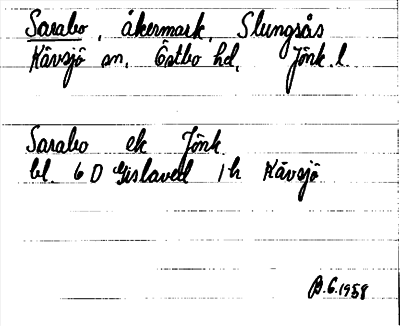 Sarabo, åkermark, Slungsås
Kävsjö sn, Östbo hd, Jönk. l.
Sarabo ek Jönk
bl. 6 D Gislaved 1 h Kävsjö
B.G. 1958